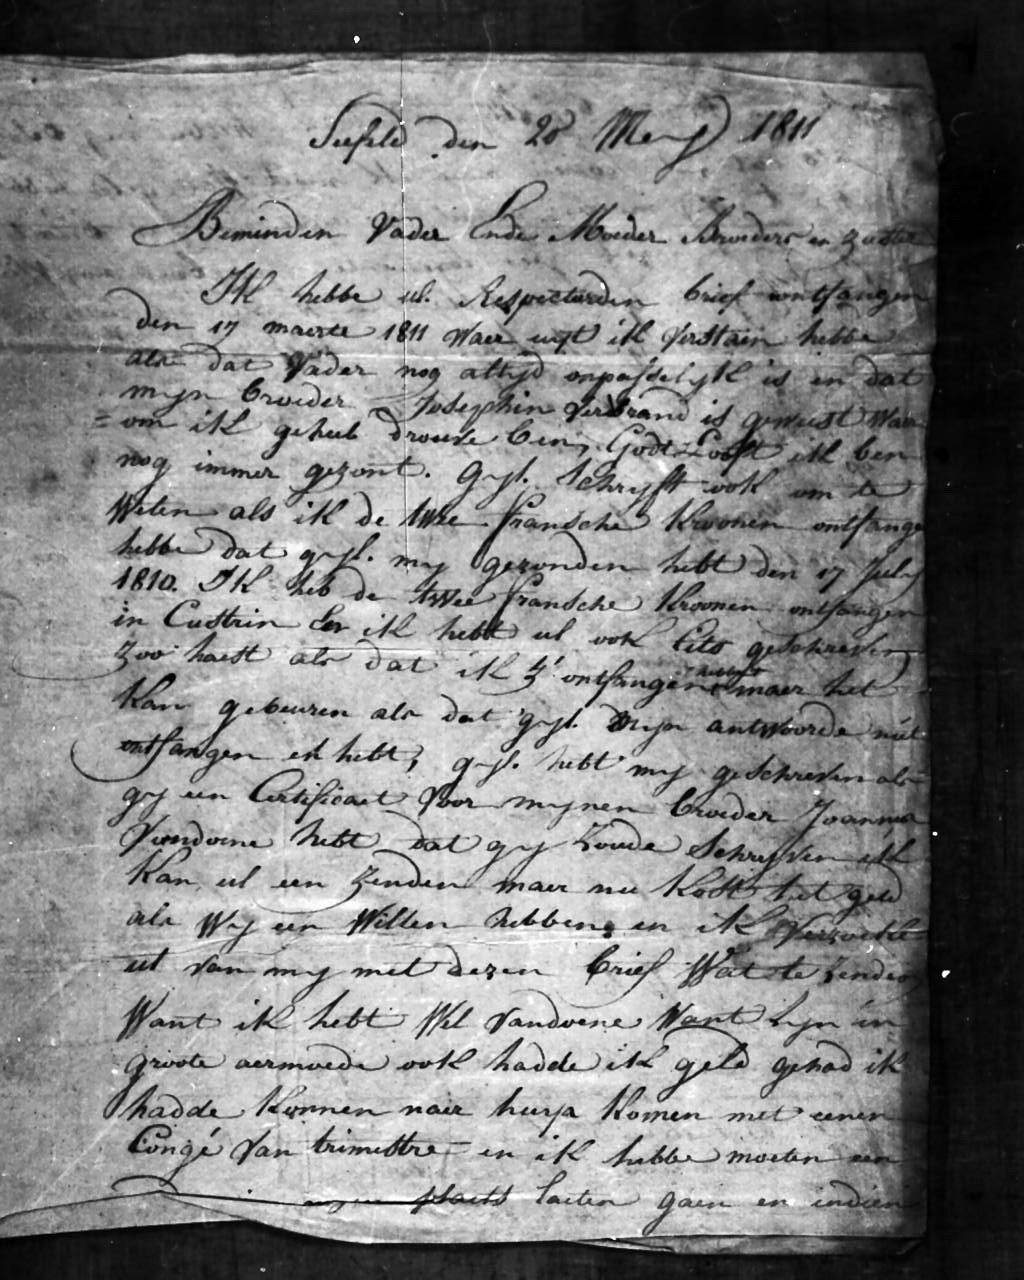 Seefeld den 28 Mey 1811
Beminden Vader Ende Moeder Broeders en Zuster
Ik hebbe ul. Respecteerden brief ontfangen
den 17 maerte 1811 Waer uyt ik verstaen hebbe
als dat Vader nog altyd onpasselyk is en dat
myn broeder Josephin verbrand is geweest Waer
= om ik geheel droeve ben, Godt Looft ik ben
nog immer gezont. gyl. Schryft ook om te
Weten als ik de twee fransche kroonen ontfange
hebbe dat gyl. my gezonden hebt den 17 July
1810. Ik heb de twee fransche kroonen ontfangen
in Custrin En ik hebt ul ook Cito geschreven
Zoo haest als dat ik Z' ontfangen maer het
kan gebeuren als dat gyl. Myn antwoorde niet
ontfangen en hebt, gyl. hebt my geschreven als
gy een Certificaet voor mynen broeder Joannes
Vandoene hebt dat gy Zoude Schryven ik
kan ul een Zenden maer nu kost het geld
als Wy een Willen hebben, en ik Verzoeke
ul van my met dezen brief Wat te Zenden
Want ik hebt Wel vandoene Want Zyn in
groote aermoede ook hadde ik geld gehad ik
hadde konnen naer huys komen met eenen
Congé van trimestre en ik hebbe moeten een
plaets laeten gaen en indien